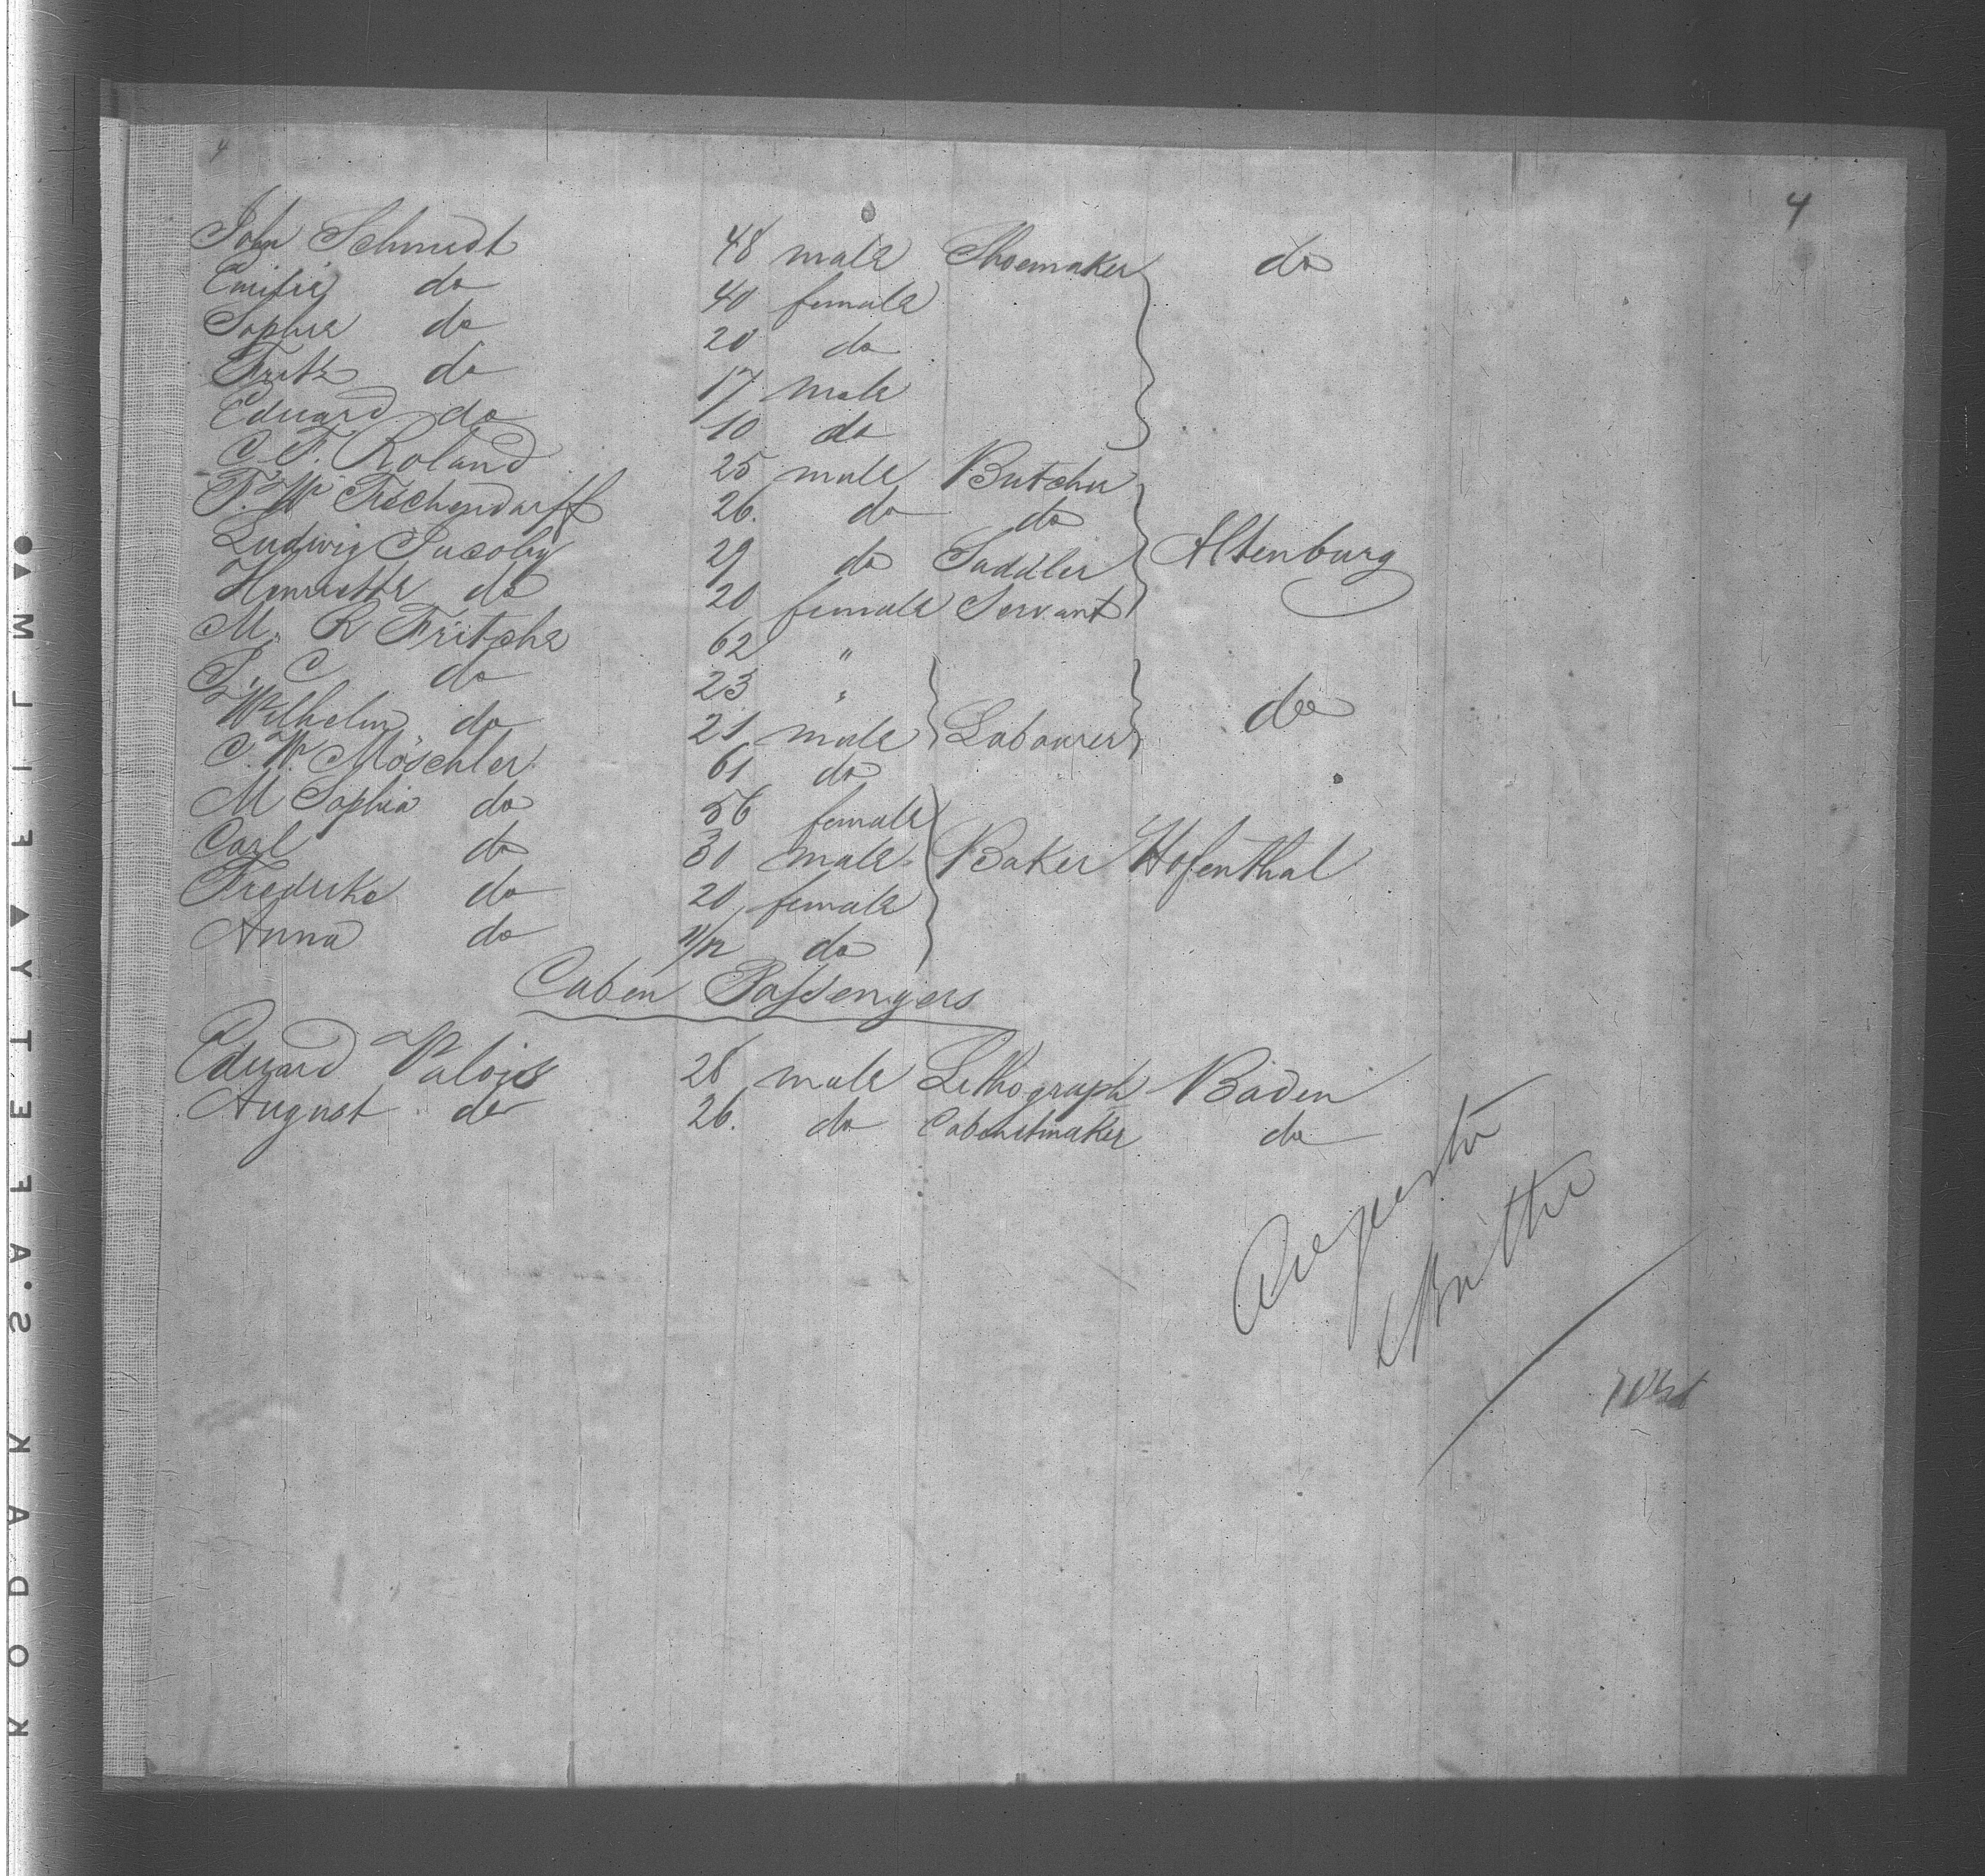 4
4
John Schmidt 48 male Shoemaker do
Emilie do 40 female
Sophie do 20 do
Fritz do 17 male
Eduard do 10 do
C. F. Roland 25 male Butcher
F. W. Tischendorff 26. do do
Ludwig Jacoby 29 do Saddler Altenburg
Henriette do 20 female Servant
M. R Fritsche 62 "
J. C do 23 "
Wilhelm do 21 male Labourer do
C. W. Möschler 61 do
M Sophia do 56 female
Carl do 31 male Baker Hofenthal
Fredrike do 20 female
Anna do 11/12 do
Caben Passengers
Eduard Valois 28 male Lithograph Baden
August do 26. do Cabenetmaker do
KODAK S.A.F.E.T.Y ▲ FILM ▲●